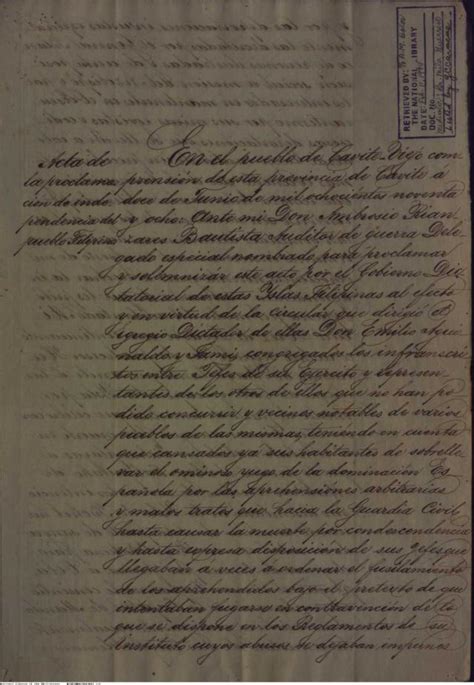 RETRIEVED BY:
THE NATIONAL LIBRARY
DATE:
DOC. NO.
Acta de
la proclama
cion de inde
pendencia del
pueblo Filipino
En el pueblo de Cavite-Viejo com
prension de esta provincia de Cavite a
doce de Junio de mil ochocientos noventa
y ocho: Ante mi Don Ambrosio Rian
zares Bautista Auditor de guerra Dele
gado especial nombrado para proclamar
y solemnizar este acto por el Gobierno Dic
tatorial de estas Yslas Filipinas al efecto
y en virtud de la circular que dirigió el
Egregio Dictador de ellas Don Emilio Agui
naldo y Famy, congregados los infrascri
tos entre Jefes de su Ejercito y represen
tantes de los otros de ellos que no han po
dido concurrir y vecinos notables de varios
pueblos de las mismas, teniendo en cuenta
que cansados ya sus habitantes de sobrelle
var el ominoso yugo de la dominación Es
pañola por las aprehensiones arbitrarias
y malos tratos que hacia la Guardia Civil
hasta causar la muerte por condescendencia
y hasta expresa disposición de sus gefes que
llegaban a veces a ordenar el fusilamiento
de los aprehendidos bajo el pretexto de que
intentaban fugarse en contravención de lo
que se dispone en los Reglamentos de su
Instituto cuyos abusos se dejaban impunes